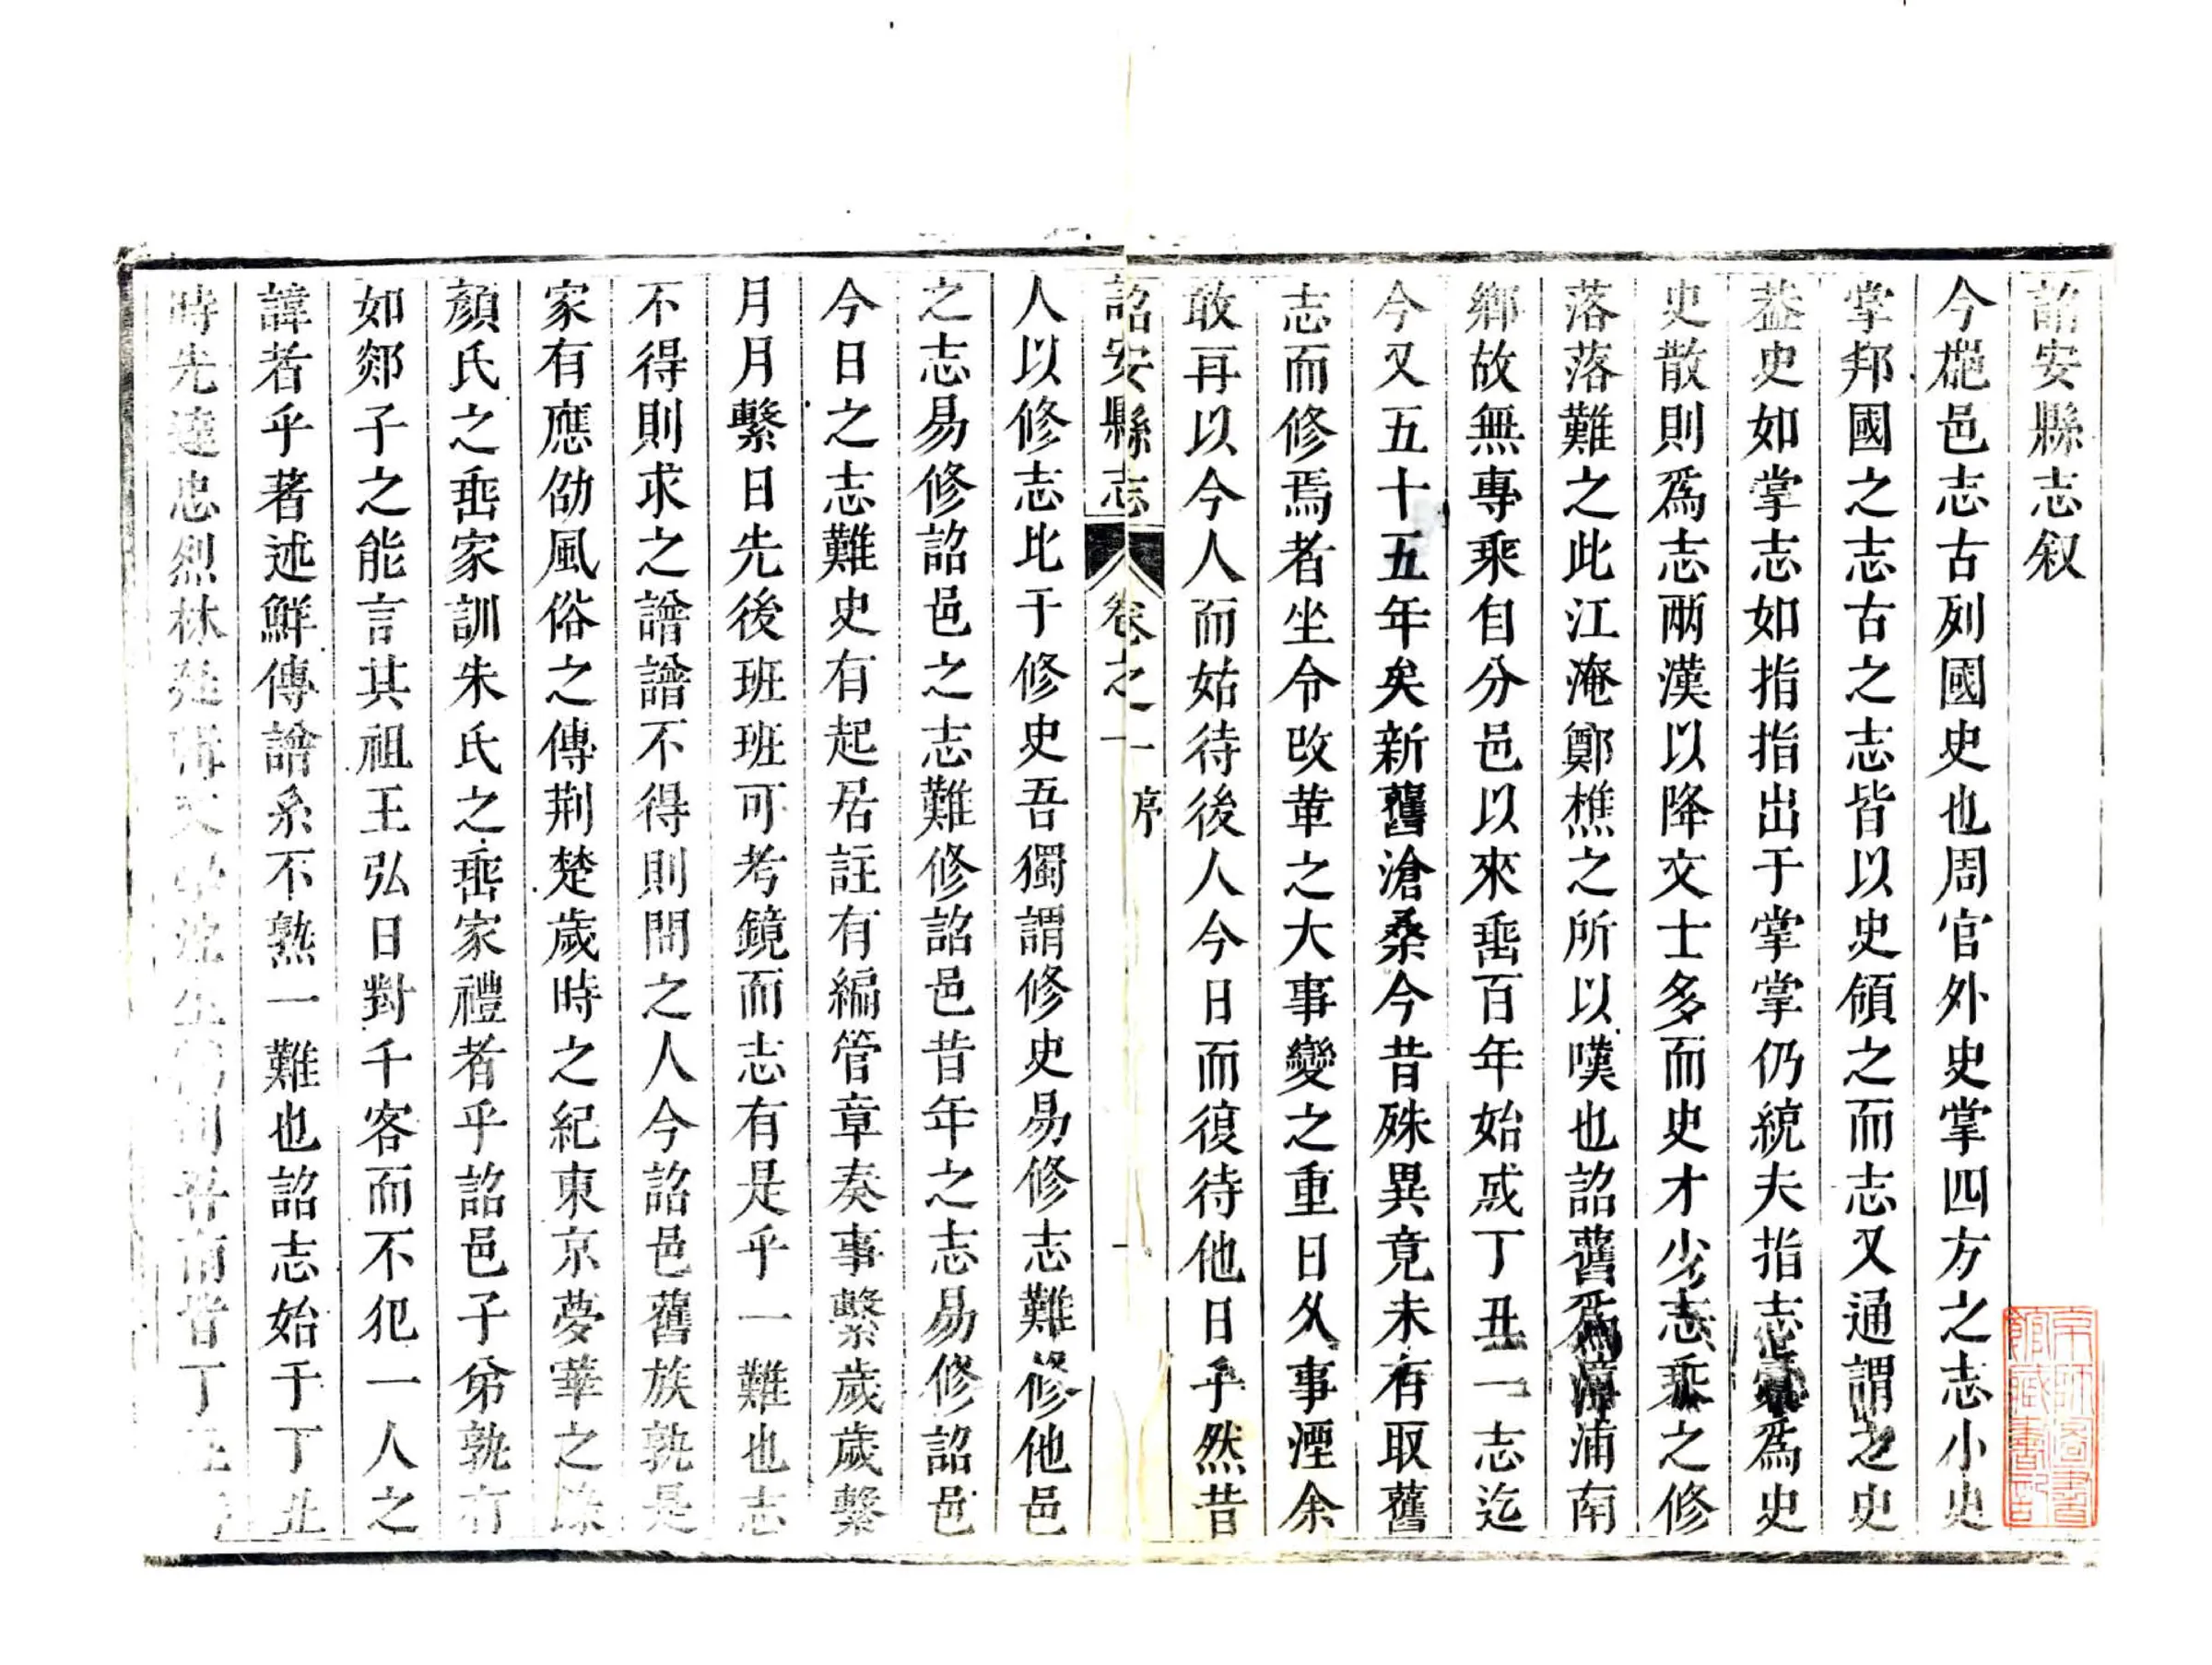 詔安縣志叙
今爏邑志古列國史也周官外史掌四方之志小史
掌邦國之志古之志皆以史領之而志又通謂之史
葢史如掌志如指指出于掌掌仍統夫指志寔爲史
史散則爲志兩漢以降文士多而史才少志乘之修
落落難之此江淹鄭樵之所以嘆也詔舊爲漳浦南
鄉故無專乘自分邑以來垂百年始成丁丑一志迄
今又五十五年矣新舊滄桑今昔殊異竟未有取舊
志而修焉者坐令改革之大事變之重日久事湮余
敢再以今人而姑待後人今日而復待他日乎然昔
詔安縣志 卷之一 序 一
人以修志比于修史吾獨謂修史易修志難修他邑
之志易修詔邑之志難修詔邑昔年之志易修詔邑
今日之志難史有起居註有編管章奏事繫歲歲繫
月月繫日先後班班可考鏡而志有是乎一難也志
不得則求之譜譜不得則問之人今詔邑舊族孰是
家有應劭風俗之傳荆楚歲時之紀東京夢華之錄
顔氏之垂家訓朱氏之垂家禮者乎詔邑子弟孰有
如郯子之能言其祖王弘日對千客而不犯一人之
諱者乎著述鮮傳譜系不熟一難也詔志始于丁丑
時先達忠烈林廷 沈 吾南皆丁